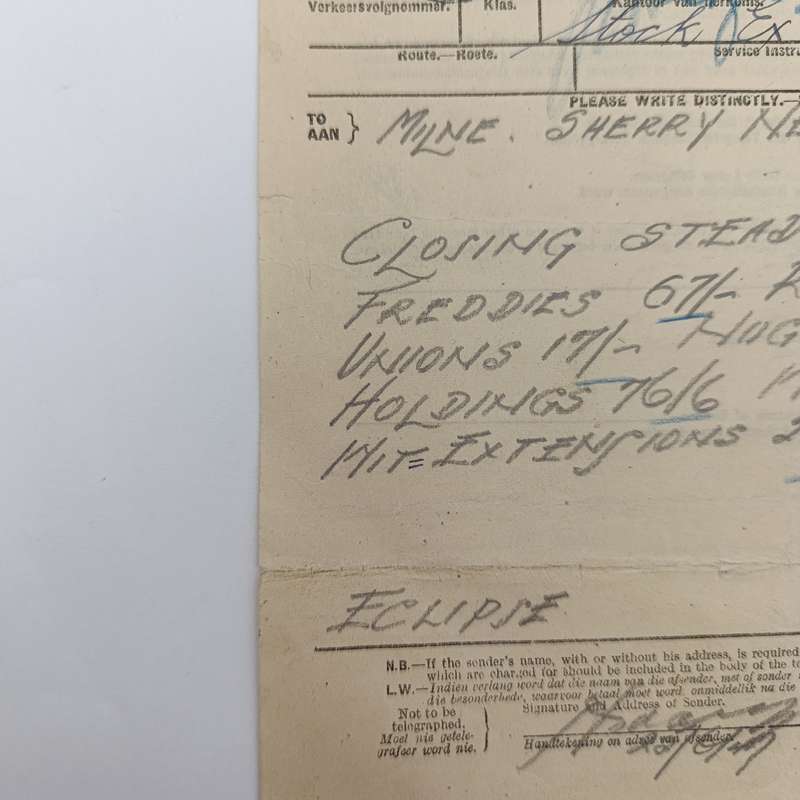 Verkeersvolgnommer. Klas. Kantoor van herkoms.
Stock Ex
Route.—Roete. Service Instru
PLEASE WRITE DISTINCTLY.—
TO
AAN } MILNE. SHERRY NE
CLOSING STEAD
FREDDIES 67/-
UNIONS 17/- NUG
HOLDINGS 76/6
WIT= EXTENSIONS 2
ECLIPSE
N.B.—If the sender's name, with or without his address, is required
which are charged for should be included in the body of the te
L.W.—Indien verlang word dat die naam van die afsender, met of sonder
die besonderhede, waarvoor betaal moet word, onmiddellik na die
Not to be
telegraphed.
Moet nie getele-
grafeer word nie.
Signature and Address of Sender.
Handtekening en adres van afsender.